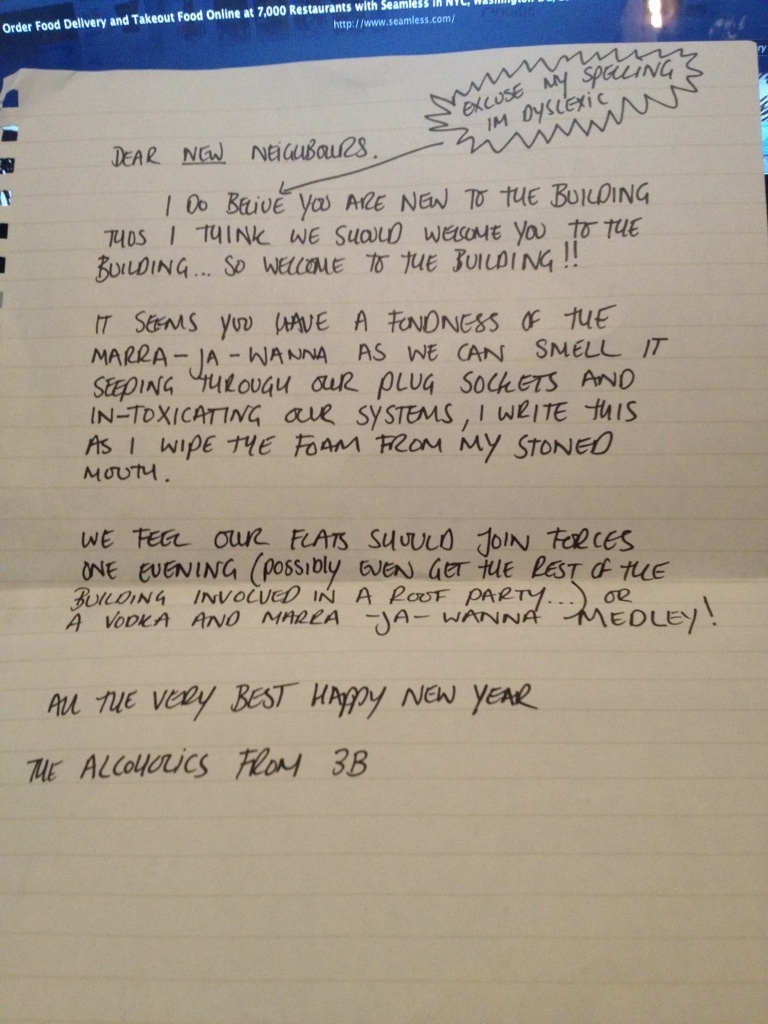 Order Food Delivery and Takeout Food Online at 7,000 Restaurants with Seamless in NYC,
http://www.seamless.com/
EXCUSE MY SPELLING
IM DYSLEXIC
DEAR NEW NEIGHBOURS.
I DO BELIVE YOU ARE NEW TO THE BUILDING
THUS I THINK WE SHOULD WELCOME YOU TO THE
BUILDING... SO WELLCOME TO THE BUILDING!!
IT SEEMS YOU HAVE A FONDNESS OF THE
MARRA-JA-WANNA AS WE CAN SMELL IT
SEEPING THROUGH OUR PLUG SOCKETS AND
IN-TOXICATING OUR SYSTEMS, I WRITE THIS
AS I WIPE THE FOAM FROM MY STONED
MOUTH.
WE FEEL OUR FLATS SHOULD JOIN FORCES
ONE EVENING (POSSIBLY EVEN GET THE REST OF THE
BUILDING INVOLVED IN A ROOF PARTY...) OR
A VODKA AND MARRA-JA-WANNA MEDLEY!
ALL THE VERY BEST HAPPY NEW YEAR
THE ALCOHOLICS FROM 3B